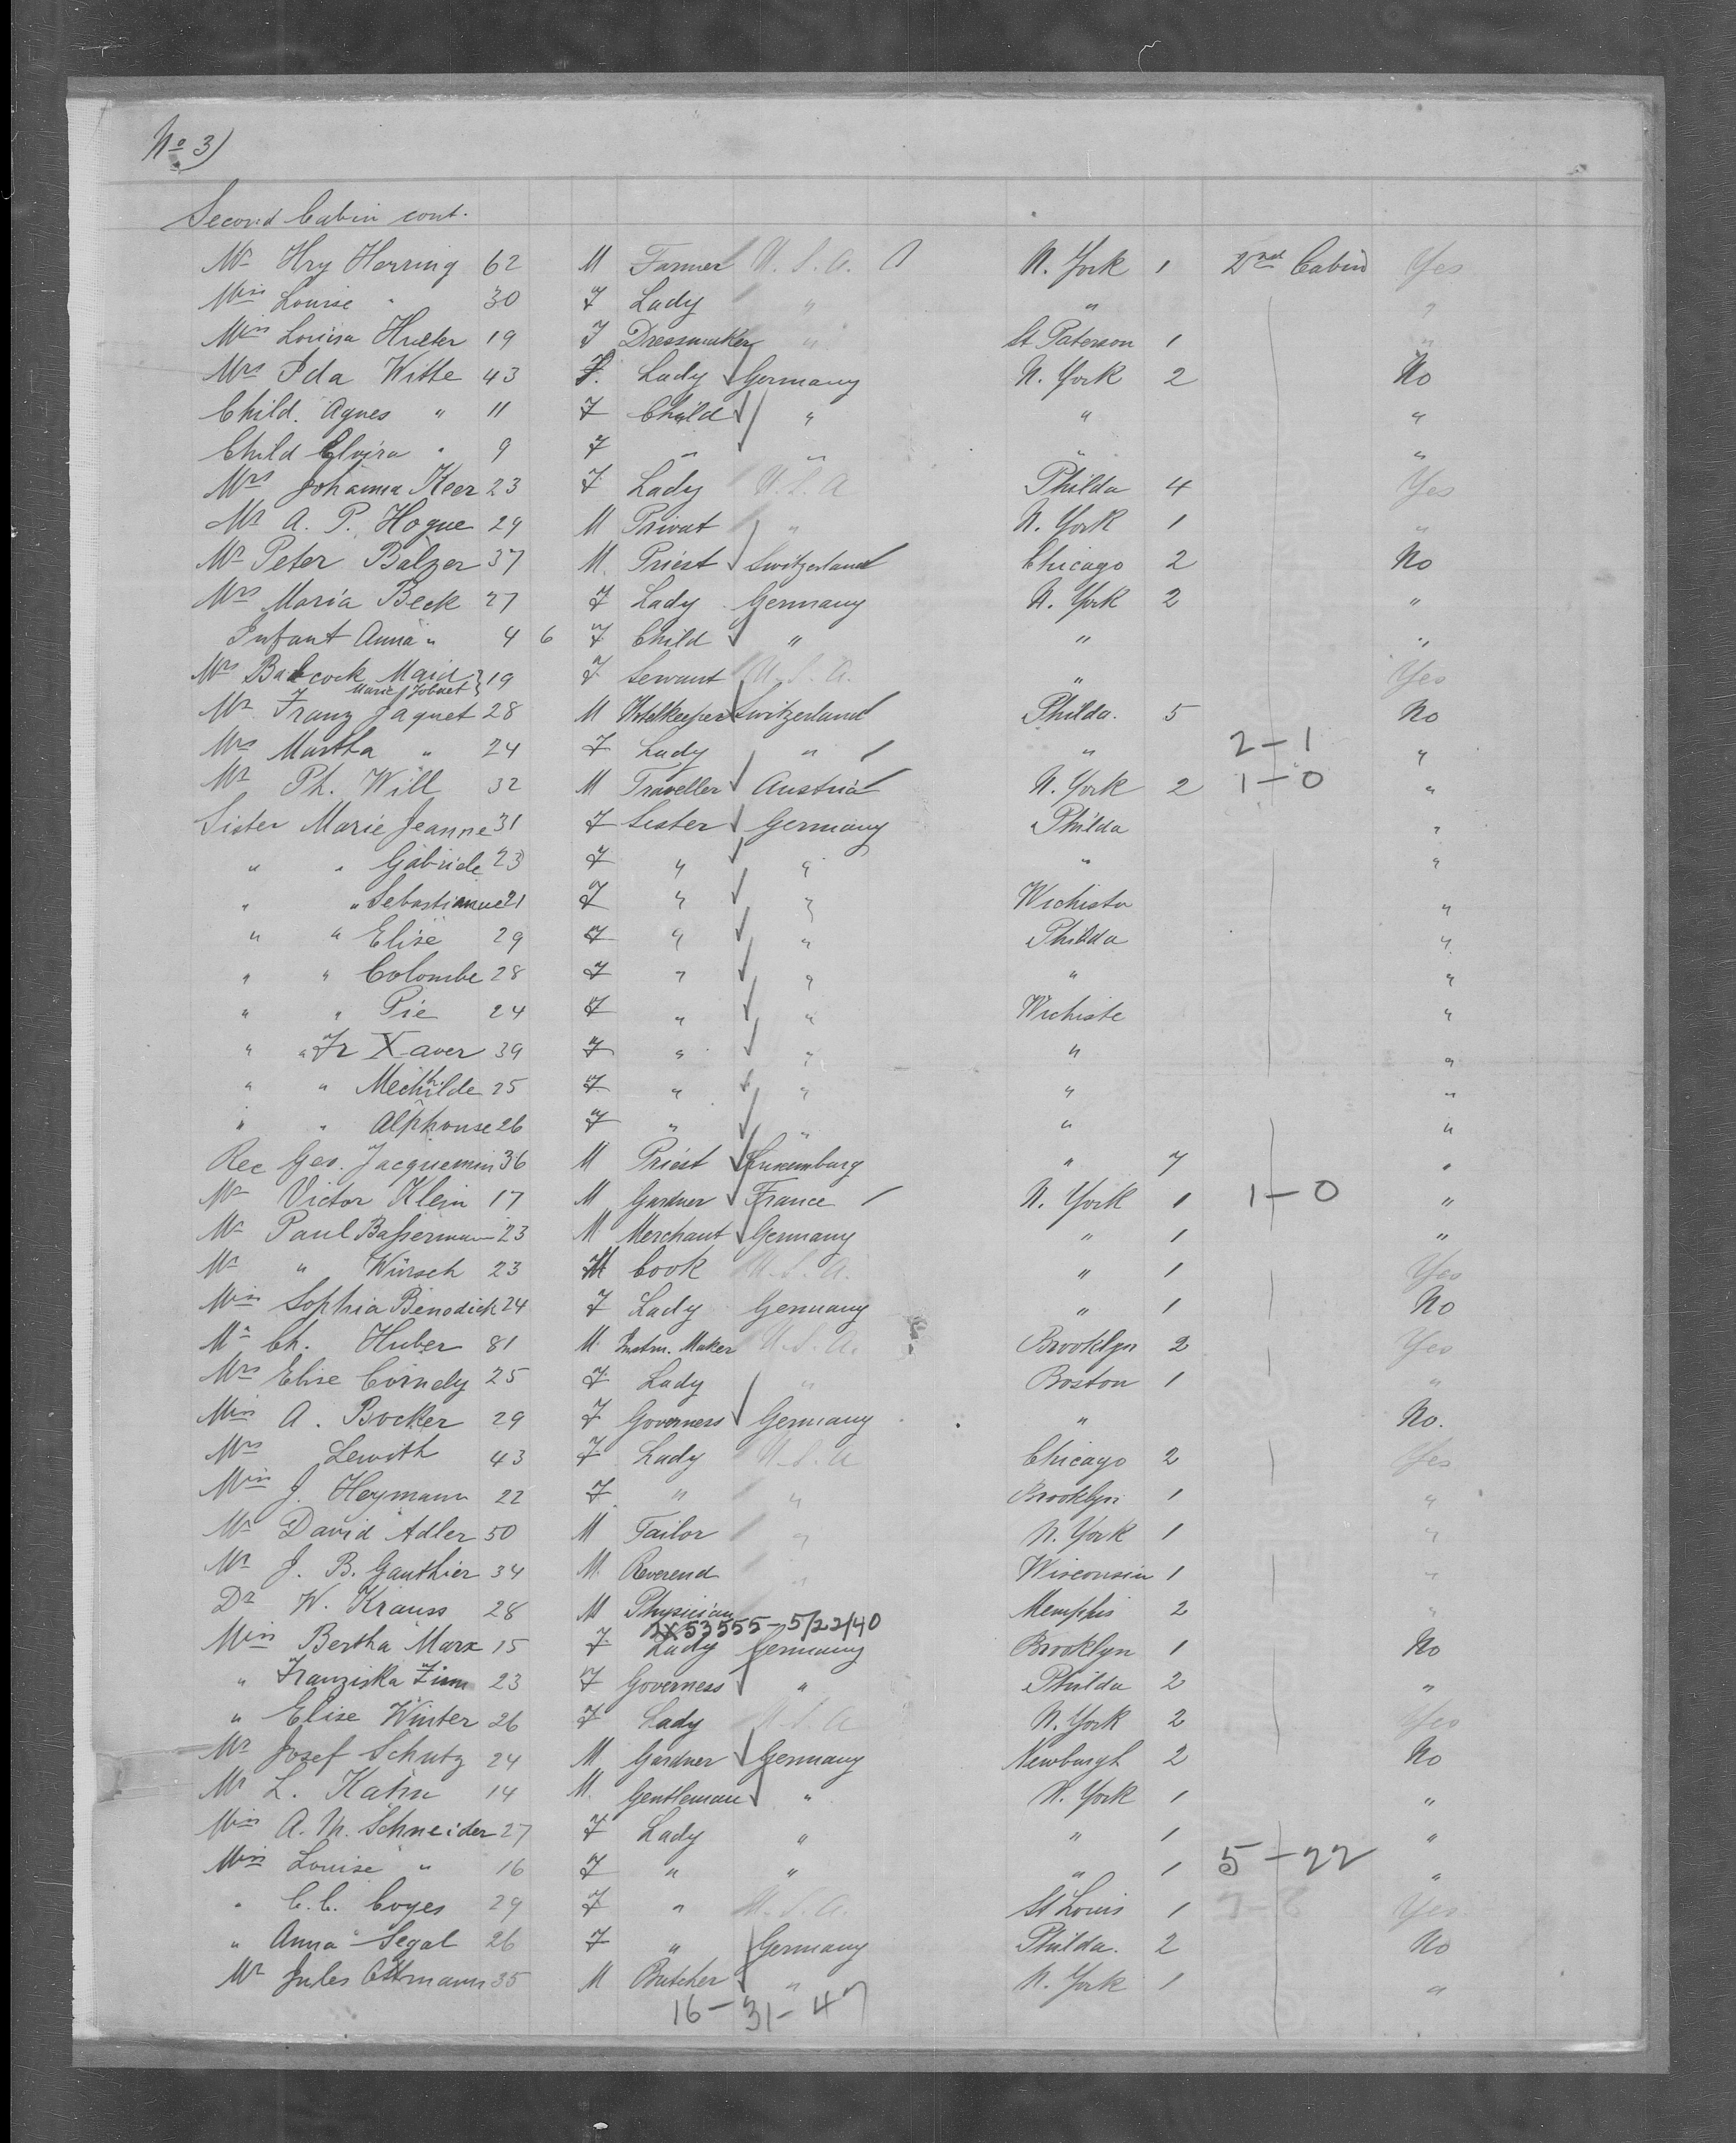 No 3)
Second Cabin cont.
Mr Hry Herring 62 M Farmer U. S. A. N. York 1 2nd Cabin Yes
Miss Louise " 30 F Lady " " "
Miss Louisa Hueter 19 F Dressmaker " St Paterson 1 "
Mrs Ida Witte 43 F. Lady Germany N. York 2 No
Child. Agnes " 11 F Child " " "
Child Elvira " 9 F " " " "
Mrs Johanna Keer 23 F Lady U. S. A Philda 4 Yes
Mr A. P. Hogue 29 M Privat " N. York 1 "
Mr Peter Balzer 37 M. Priest Switzerland Chicago 2 No
Mrs Maria Beck 27 F Lady Germany N. York 2 "
Infant Anna " 4 6 F Child " " "
Mrs Babcock Maid 19 F Servant U. S. A. " Yes
Marie
Mr Franz Jaquet 28 M Hotelkeeper Switzerland Philda. 5 No
Mrs Martha " 24 F Lady " " 2-1 "
Mr Ph. Will 32 M Traveller Austria N. York 2 1-0 "
Sister Marie Jeanne 31 F Sister Germany Philda "
" " Gabriele 23 F " " " "
" " 21 F " " Wichista "
" " Elise 29 F " " Philda "
" " Colombe 28 F " " " "
" " Pie 24 F " " Wichiste "
" " Fr Xaver 39 F " " " "
" " Mechthilde 25 F " " " "
" " Alphonse 26 F " " " "
Rec Geo. Jacquemin 36 M Priest Luxemburg " 7 "
Mr Victor Klein 17 M Gardner France N. York 1 1-0 "
Mr Paul Bassermann 23 M Merchant Germany " 1 "
Mr " Würsch 23 M Cook U. S. A. " 1 Yes
Miss Sophia Benedick 24 F Lady Germany " 1 No
Mr Ch. Huber 81 M. Instru. Maker U. S. A. Brooklyn 2 Yes
Mrs Elise Cornely 25 F Lady " Boston 1 "
Miss A. Bocker 29 F Governess Germany " No.
Mrs Lewith 43 F Lady U. S. A Chicago 2 Yes
Miss J. Heymann 22 F " " Brooklyn 1 "
Mr David Adler 50 M Tailor " N. York 1 "
Mr J. B. Gauthier 34 M. Reverend " Wisconsin 1 "
Dr W. Krauss 28 M Physician Memphis 2 "
2X53555-5/22/40
Miss Bertha Marx 15 F Lady Germany Brooklyn 1 No
" Franziska Zinn 23 F Governess " Philda 2 "
" Elise Winter 26 F Lady U. S. A N. York 2 Yes
Mr Josef Schutz 24 M Gardner Germany Newburgh 2 No
Mr L. Kahn 14 M. Gentleman " N. York 1 "
Miss A. M. Schneider 27 F Lady " " 1 "
Miss Louise " 16 F " " " 1 5-22 "
" C. C. Coyes 29 F " U. S. A. St Louis 1 Yes
" Anna Segal 26 F " Germany Philda. 2 No
Mr Jules Ottmann 35 M Butcher " N. York 1 "
16-31-47